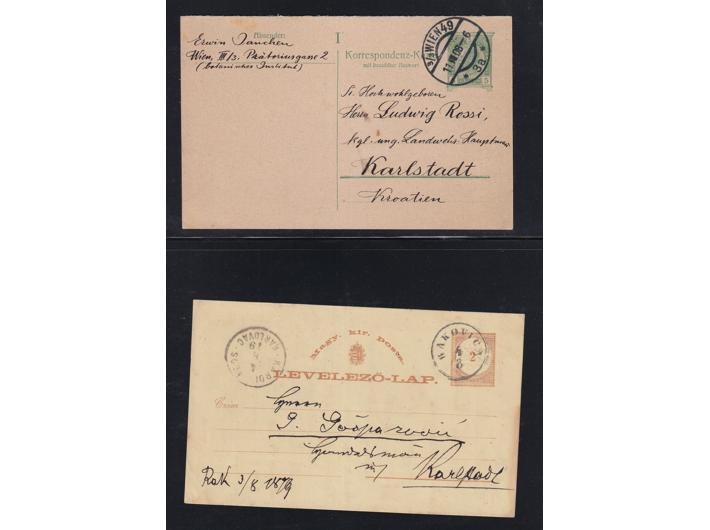 Absender:
Erwin Janchen
Wien, III/3. Prätoriusgasse 2
(botanisches Institut)
I
Korrespondenz-K
mit bezahlter Antwort
3/3 WIEN 49
3a
5
Sr. Hochwohlgeboren
Herrn Ludwig Rossi,
kgl. ung. Landwehr-Hauptmann
Karlstadt
Kroatien
KARLOVAC
Magy. kir. posta.
LEVELEZŐ-LAP.
2
Czim
Herrn
in
Karlstadt
Rak 3/8 1879